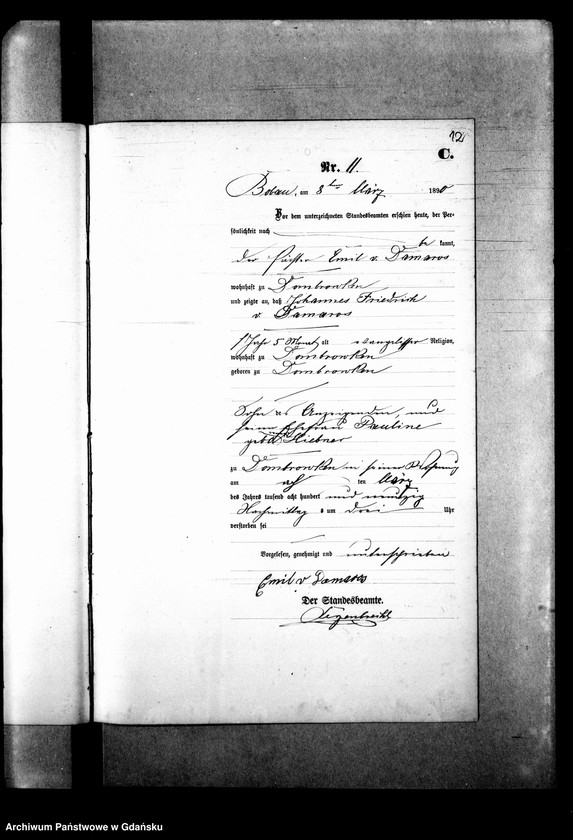 12
C.
Nr. 11.
am 8ten März 1890
Vor dem unterzeichneten Standesbeamten erschien heute, der Per-
sönlichkeit nach
be kannt,
der Emil v. Damaros
wohnhaft zu Dombrowken
und zeigte an, daß Johannes Friedrich
v Damaros
1 Jahr 5 Monat alt evangelischer Religion,
wohnhaft zu Dombrowken
geboren zu Dombrowken
Sohn des Anzeigenden, und
seiner Ehefrau Pauline
geb
zu Dombrowken in seiner Wohnung
am ten März
des Jahres tausend acht hundert und neunzig
Nachmittags um drei Uhr
verstorben sei
Vorgelesen, genehmigt und unterschrieben
Emil v Damaros
Der Standesbeamte.
Archiwum Państwowe w Gdańsku